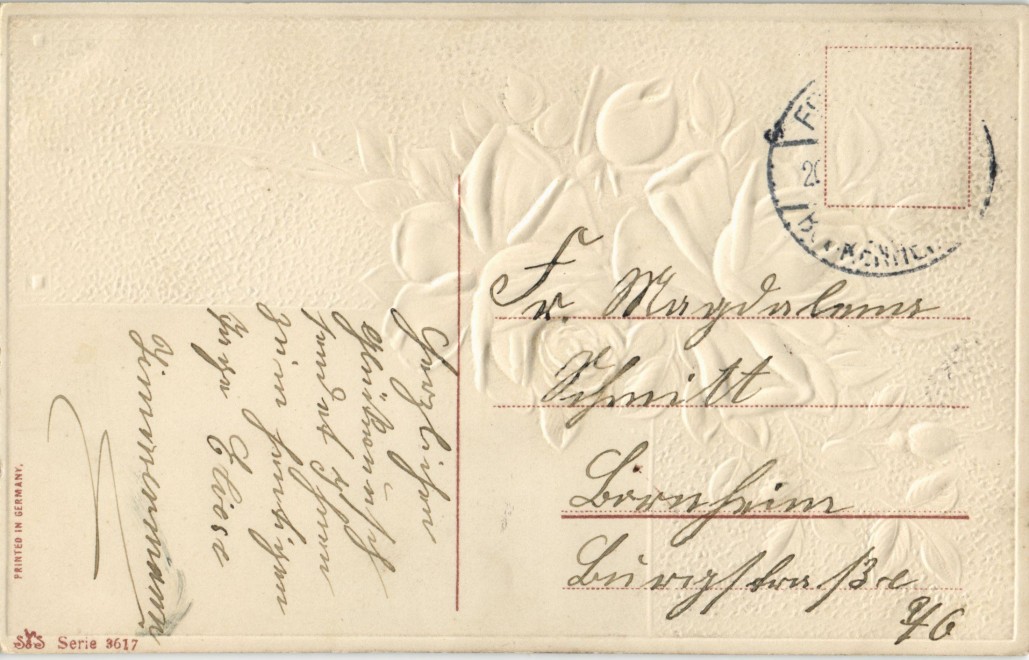 Herzlichen
Glückwunsch
sendet Ihnen
zum heutigen
Ihre Eliese
Zimmermann
Fr. Magdalena
Schmitt
Bornheim
Burgstraße
9/6
PRINTED IN GERMANY.
Serie 3617